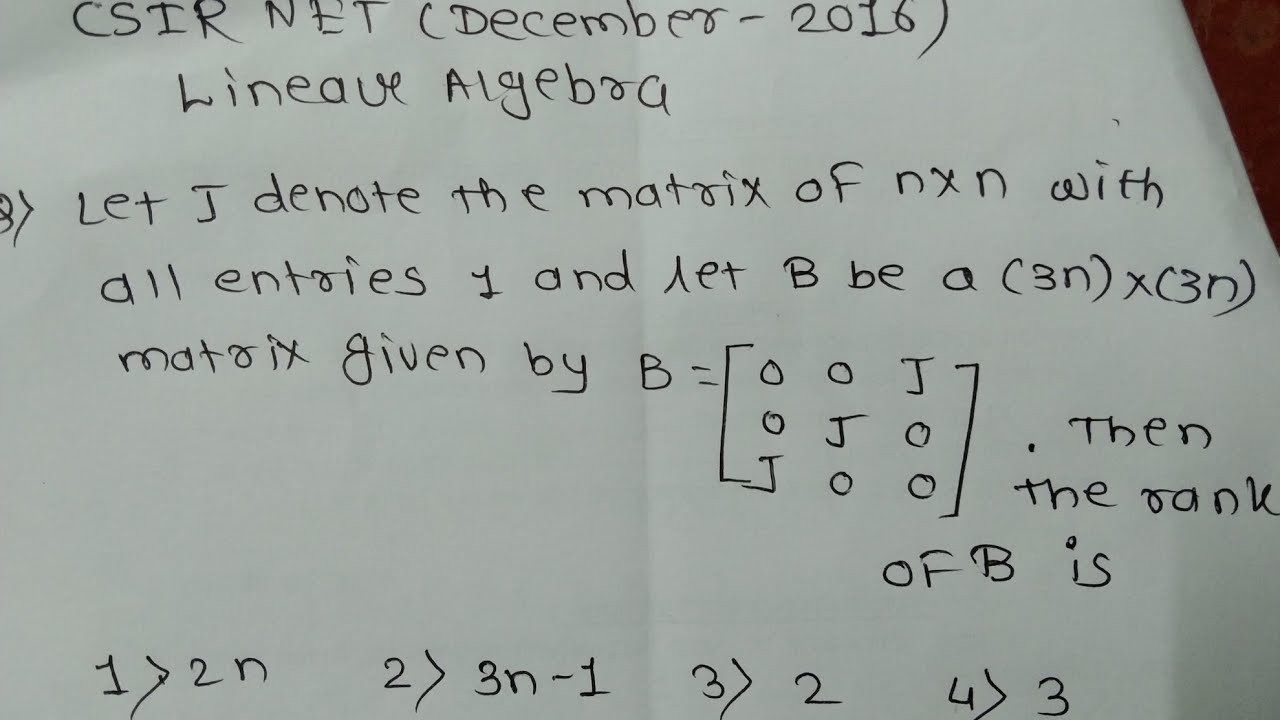 CSIR NET (December - 2016)
Lineave Algebra
8) Let J denote the matrix of n×n with
all entries 1 and let B be a (3n)×(3n)
matrix given by B = [0 0 J
0 J 0
J 0 0] . Then
the rank
OF B is
1) 2n 2) 3n-1 3) 2 4) 3